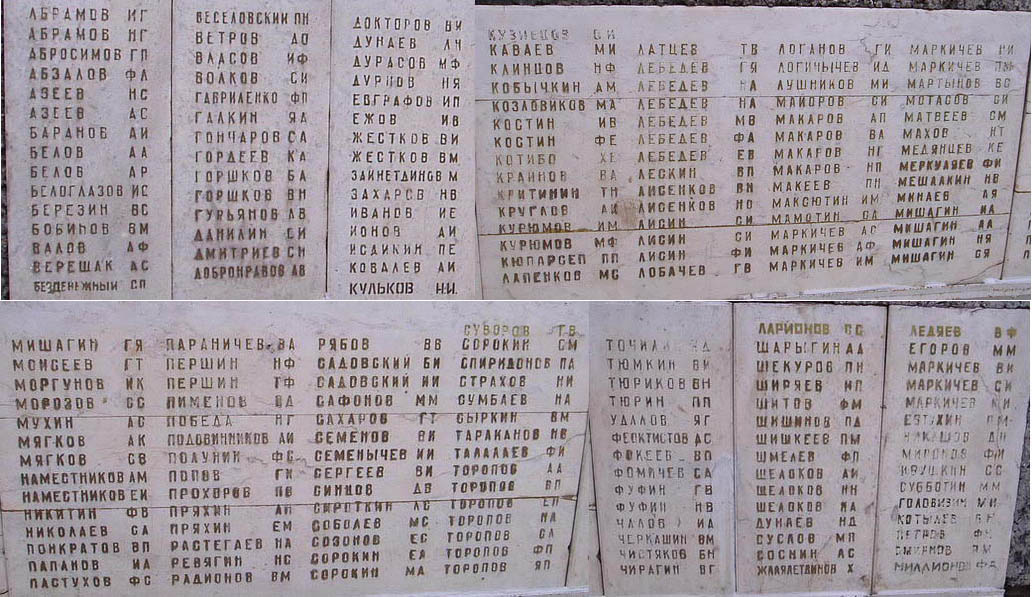 АБРАМОВ ИГ
АБРАМОВ НГ
АБРОСИМОВ ГП
АБЗАЛОВ ФЛ
АЗЕЕВ НС
АЗЕЕВ АС
БАРАНОВ АИ
БЕЛОВ АА
БЕЛОВ АР
БЕЛОГЛАЗОВ ИС
БЕРЕЗИН ВС
БОБИНОВ ВМ
ВАЛОВ АФ
ВЕРЕЩАК АС
БЕЗДЕНЕЖНЫЙ СП
ВЕСЕЛОВСКИЙ ПН
ВЕТРОВ ДО
ВЛАСОВ ИФ
ВОЛКОВ СИ
ГАВРИЛЕНКО ФП
ГАЛКИН ЯД
ГОНЧАРОВ СА
ГОРДЕЕВ КА
ГОРШКОВ БА
ГОРШКОВ ВН
ГУРЬЯНОВ ЛВ
ДАНИЛИН СИ
ДМИТРИЕВ СН
ДОБРОНРАВОВ АВ
ДОКТОРОВ ВИ
ДУНАЕВ ЛЧ
ДУРАСОВ МФ
ДУРНОВ НЯ
ЕВГРАФОВ ИП
ЕЖОВ ИВ
ЖЕСТКОВ ВИ
ЖЕСТКОВ ВМ
ЗАЙНЕТДИНОВ М
ЗАХАРОВ НВ
ИВАНОВ ИЕ
ИОНОВ АИ
ИСАЙКИН ПЕ
КОВАЛЕВ АИ
КУЛЬКОВ Н.И.
КУЗНЕЦОВ
КАВАЕВ МИ
КЛИНЦОВ НФ
КОБЫЧКИН АМ
КОЗЛОВИКОВ МА
КОСТИН ИВ
КОСТИН ФЕ
КОТИБО ХЕ
КРАЙНОВ ВА
КРИТИНИН ТН
КРУГЛОВ АИ
КУРЮМОВ ИМ
КУРЮМОВ МФ
КЮПАРСЕП ПП
ЛАПЕНКОВ МС
ЛАТЦЕВ ТВ
ЛЕБЕДЕВ ГЯ
ЛЕБЕДЕВ НА
ЛЕБЕДЕВ НА
ЛЕБЕДЕВ МВ
ЛЕБЕДЕВ ФА
ЛЕБЕДЕВ ЕВ
ЛЕСКИН ВП
ЛИСЕНКОВ ВН
ЛИСЕНКОВ НО
ЛИСИН
ЛИСИН СИ
ЛИСИН ФИ
ЛОБАЧЕВ ГВ
ЛОГАНОВ ГИ
ЛОГИЧЫЧЕВ ИД
ЛУШНИКОВ МИ
МАЙОРОВ СИ
МАКАРОВ АП
МАКАРОВ ВА
МАКАРОВ НГ
МАКАРОВ НП
МАКЕЕВ ПН
МАКСЮТИН ИМ
МАМОТИН
МАРКИЧЕВ АС
МАРКИЧЕВ АФ
МАРКИЧЕВ ИМ
МАРКИЧЕВ НИ
МАРКИЧЕВ ПМ
МАРТЫНОВ ВС
МОТАСОВ СИ
МАТВЕЕВ СМ
МАХОВ НТ
МЕДЯНЦЕВ КЕ
МЕРКУЛЯЕВ ФИ
МЕШАЛКИН НВ
МИНАЕВ АЯ
МИШАГИН ИА
МИШАГИН НЯ
МИШАГИН СЯ
МИШАГИН ГЯ
МОИСЕЕВ ГТ
МОРГУНОВ ИК
МОРОЗОВ СС
МУХИН АС
МЯГКОВ АК
МЯГКОВ СВ
НАМЕСТНИКОВ АМ
НАМЕСТНИКОВ ЕИ
НИКИТИН ФВ
НИКОЛАЕВ СА
ПОНКРАТОВ ВП
ПАПАНОВ ИА
ПАСТУХОВ ФС
ПАРАНИЧЕВ ВА
ПЕРШИН НФ
ПЕРШИН ГФ
ПИМЕНОВ
ПОБЕДА НГ
ПОДОВИННИКОВ АИ
ПОЛУНИН ФС
ПОПОВ
ПРОХОРОВ ПВ
ПРЯХИН
ПРЯХИН ЕМ
РАСТЕГАЕВ НА
РЕВЯГИН НС
РАДИОНОВ ВМ
РЯБОВ ВВ
САДОВСКИЙ БИ
САДОВСКИЙ ИИ
САФОНОВ ММ
САХАРОВ ГТ
СЕМЕНОВ ВИ
СЕМЕНЫЧЕВ ИИ
СЕРГЕЕВ ВИ
СИНЦОВ ДВ
СИРОТКИН АС
СОБОЛЕВ МС
СОЗОНОВ ЕС
СОРОКИН ЕА
СОРОКИН МА
СУВОРОВ ГВ
СОРОКИН СМ
СПИРИДОНОВ ПА
СТРАХОВ НИ
СУМБАЕВ НА
СЫРКИН ВМ
ТАРАКАНОВ НВ
ТАЛАЛАЕВ ФИ
ТОРОПОВ АА
ТОРОПОВ ВП
ТОРОПОВ ЕП
ТОРОПОВ НА
ТОРОПОВ ФП
ТОРОПОВ ЯП
ТОЧИЛИН
ТЮМКИН ВИ
ТЮРИКОВ ВН
ТЮРИН ПП
УДАЛОВ ЯГ
ФЕОКТИСТОВ АС
ФОКЕЕВ ВП
ФОМИЧЕВ СА
ФУФИН ГВ
ФУФИН НВ
ЧАЛОВ ИА
ЧЕРКАШИН ВМ
ЧИСТЯКОВ БН
ЧИРАГИН ВГ
ЛАРИОНОВ СС
ШАРЫГИН АД
ШЕКУРОВ ПН
ШИРЯЕВ ИП
ШИТОВ ФМ
ШИШИНОВ ПД
ШИШКЕЕВ ПМ
ШМЕЛЕВ ФП
ЩЕЛОКОВ АИ
ЩЕЛОКОВ ИН
ЩЕЛОКОВ НА
ДУНАЕВ НД
СУСЛОВ МП
СОСНИН АС
ЖАЛЯЛЕТДИНОВ Х
ЛЕДЯЕВ ВФ
ЕГОРОВ ММ
МАРКИЧЕВ ВИ
МАРКИЧЕВ СИ
МАРКИЧЕВ
ЕВТУХИН
НИКАШОВ
МИРОНОВ ФИ
ЯРУШКИН СС
СУББОТИН ММ
ГОЛОВИЗИН МИ
КОТЫЛЕВ
ПЕТРОВ
СМИРНОВ
МИЛЛИОНОВ ФД